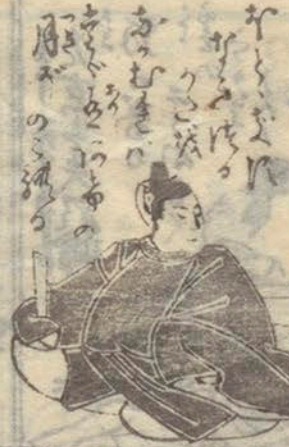 ほとゝぎす
なきつる
かたを
ながむれば
たゞ有あけの
月ぞ
のこれる